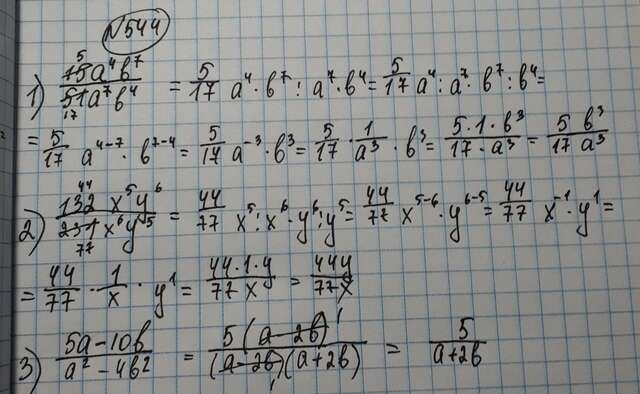 №544
1) 15a⁴b⁷/51a⁷b⁴ (5/17) = 5/17 a⁴·b⁷ : a⁷·b⁴ = 5/17 a⁴ : a⁷ · b⁷ : b⁴ =
= 5/17 a⁴⁻⁷ · b⁷⁻⁴ = 5/17 a⁻³ · b³ = 5/17 · 1/a³ · b³ = 5·1·b³/17·a³ = 5b³/17a³
2) 132x⁵y⁶/231x⁶y⁵ (44/77) = 44/77 x⁵ : x⁶ · y⁶ : y⁵ = 44/77 x⁵⁻⁶ · y⁶⁻⁵ = 44/77 x⁻¹ · y¹ =
= 44/77 · 1/x · y¹ = 44·1·y/77x = 44y/77x
3) 5a-10b/a²-4b² = 5(a-2b)¹/(a-2b)₁(a+2b) = 5/a+2b